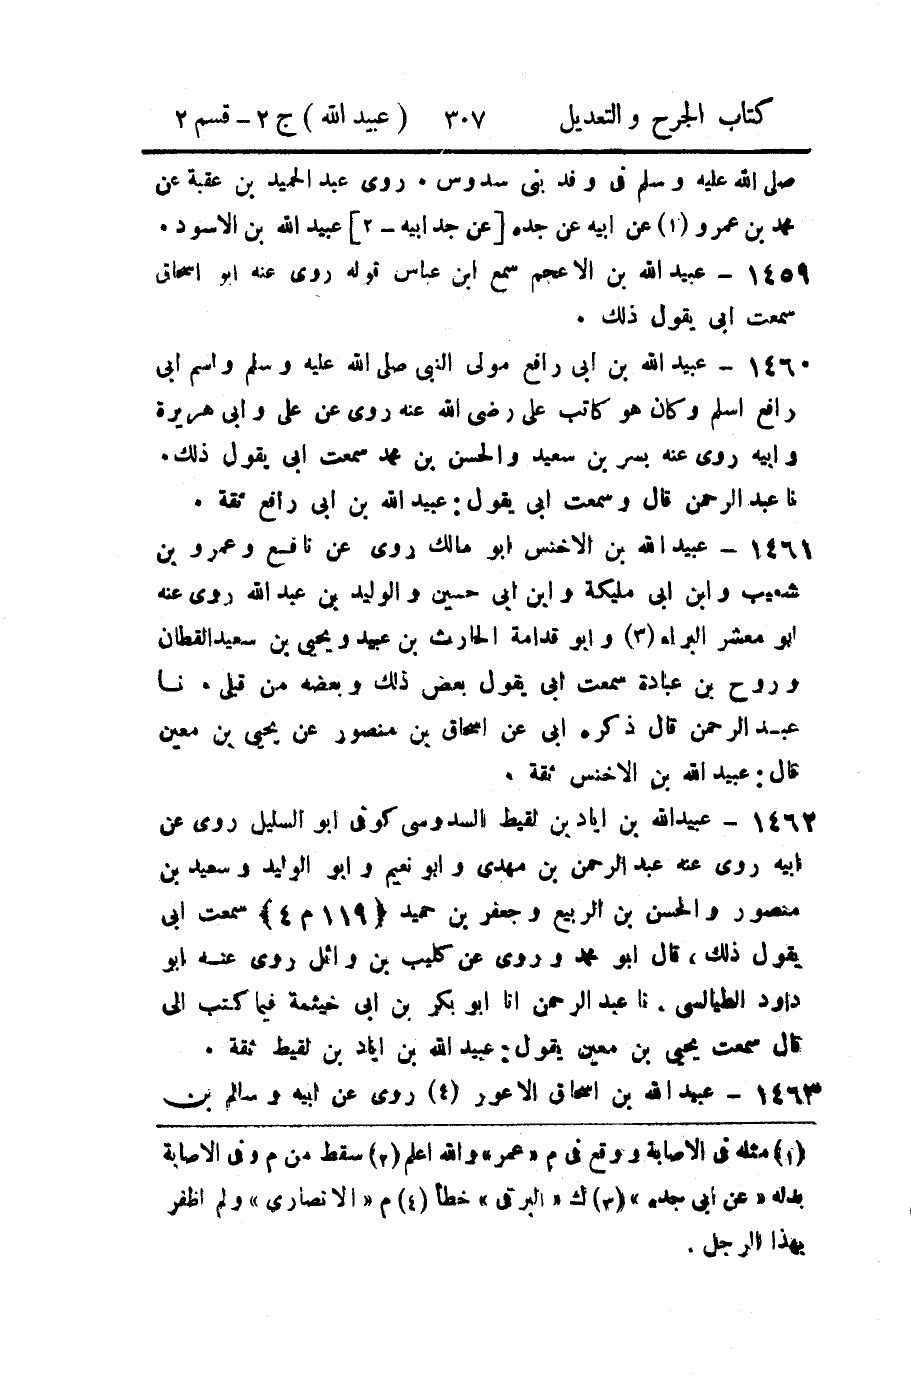 كتاب الجرح و التعديل ٣٠٧ ( عبيد الله ) ج ٢ - قسم ٢
صلى الله عليه و سلم فى و فد بنى سدوس . روى عبد الحميد بن عقبة عن
محمد بن عمرو (١) عن ابيه عن جده [ عن جد ابيه - ٢] عبيد الله بن الاسود .
١٤٥٩ - عبيد الله بن الاعجم سمع ابن عباس قوله روى عنه ابو اسحاق
سمعت ابى يقول ذلك .
١٤٦٠ - عبيد الله بن ابى رافع مولى النبى صلى الله عليه و سلم و اسم ابى
رافع اسلم و كان هو كاتب على رضى الله عنه روى عن على و ابى هريرة
و ابيه روى عنه بسر بن سعيد و الحسن بن محمد سمعت ابى يقول ذلك .
نا عبد الرحمن قال و سمعت ابى يقول : عبيد الله بن ابى رافع ثقة .
١٤٦١ - عبيد الله بن الاخنس ابو مالك روى عن نافع و عمرو بن
شعيب و ابن ابى مليكة و ابن ابى حسين و الوليد بن عبد الله روى عنه
ابو معشر البراء (٣) و ابو قدامة الحارث بن عبيد و يحيى بن سعيد القطان
و روح بن عبادة سمعت ابى يقول بعض ذلك و بعضه من قبلى . نا
عبد الرحمن قال ذكره ابى عن اسحاق بن منصور عن يحيى بن معين
قال : عبيد الله بن الاخنس ثقة .
١٤٦٢ - عبيدالله بن اياد بن لقيط السدوسى كوفى ابو السليل روى عن
ابيه روى عنه عبد الرحمن بن مهدى و ابو نعيم و ابو الوليد و سعيد بن
منصور و الحسن بن الربيع و جعفر بن حميد { ١١٩ م ٤ } سمعت ابى
يقول ذلك ، قال ابو محمد و روى عن كليب بن وائل روى عنه ابو
داود الطيالسى . نا عبد الرحمن انا ابو بكر بن ابى خيثمة فيما كتب الى
قال سمعت يحيى بن معين يقول : عبيد الله بن اياد بن لقيط ثقة .
١٤٦٣ - عبيد الله بن اسحاق الاعور (٤) روى عن ابيه و سالم بن
(١) مثله فى الاصابة و وقع فى م « عمر » و الله اعلم (٢) سقط من م و فى الاصابة
بدله « عن ابى جده » (٣) ك « البرقى » خطأ (٤) م « الانصارى » و لم اظفر
بهذا الرجل .